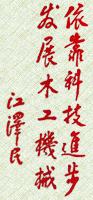 依靠科技進步
发展木工機械
江澤民